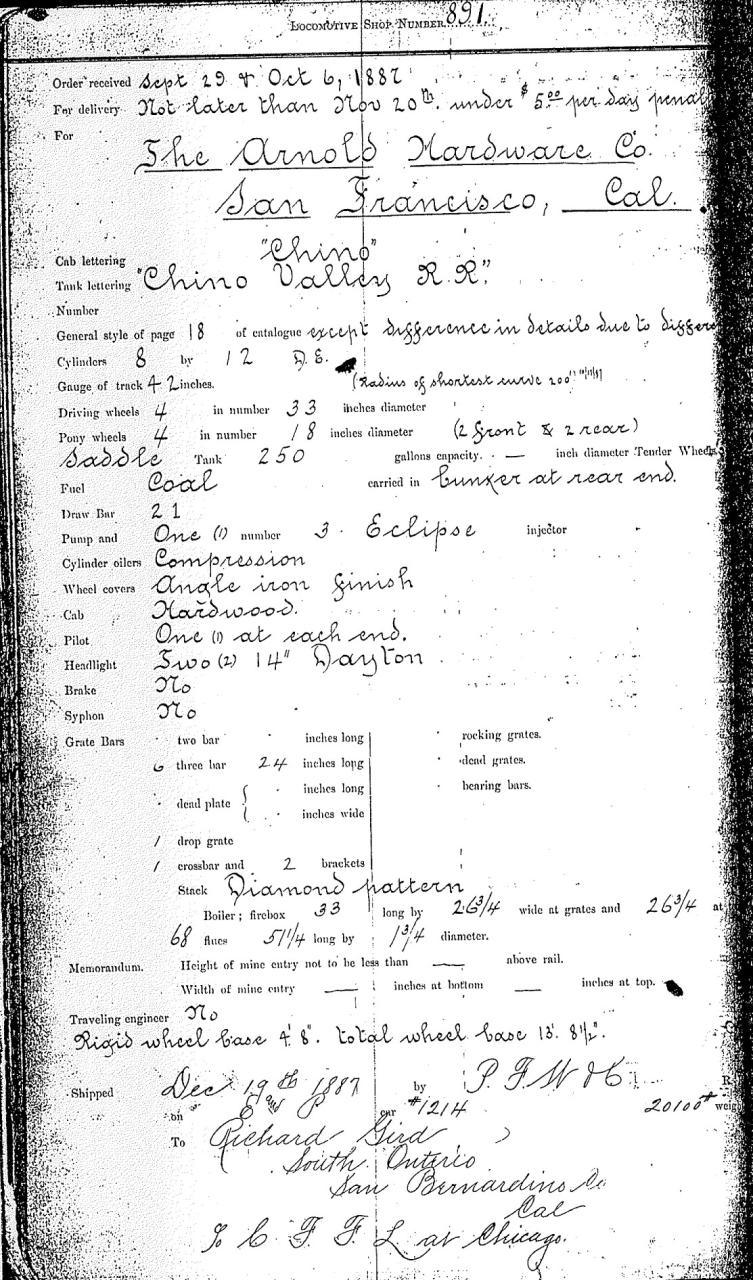 Locomotive Shop Number 891.
Order received Sept 29 & Oct 6, 1887
For delivery Not later than Nov 20th. under $5.00 per day penal
For
The Arnold Hardware Co.
San Francisco, Cal.
Cab lettering "Chino"
Tank lettering "Chino Valley R.R".
Number
General style of page 18 of catalogue except difference in details due to differe
Cylinders 8 by 12 D.E.
Gauge of track 42 inches. (Radius of shortest curve 200'
Driving wheels 4 in number 33 inches diameter
Pony wheels 4 in number 18 inches diameter (2 front & 2 rear)
Saddle Tank 250 gallons capacity. — inch diameter Tender Wheels
Fuel Coal carried in bunker at rear end.
Draw Bar 21
Pump and One (1) number 3 Eclipse injector
Cylinder oilers Compression
Wheel covers Angle iron finish
Cab Hardwood.
Pilot One (1) at each end.
Headlight Two (2) 14" Dayton
Brake No
Syphon No
Grate Bars two bar inches long rocking grates.
6 three bar 24 inches long dead grates.
dead plate { inches long bearing bars.
inches wide
1 drop grate
1 crossbar and 2 brackets
Stack Diamond pattern
Boiler; firebox 33 long by 26 3/4 wide at grates and 26 3/4 at
68 flues 51 1/4 long by 1 3/4 diameter.
Memorandum. Height of mine entry not to be less than — above rail.
Width of mine entry — inches at bottom — inches at top.
Traveling engineer No
Rigid wheel base 4' 8". total wheel base 13'. 8 1/2".
Shipped Dec 19th 1887 by P. F. W & C.
on car #1214 20100# weig
To Richard Gird
South Ontario
San Bernardino Co
Cal
To C F F L at Chicago.